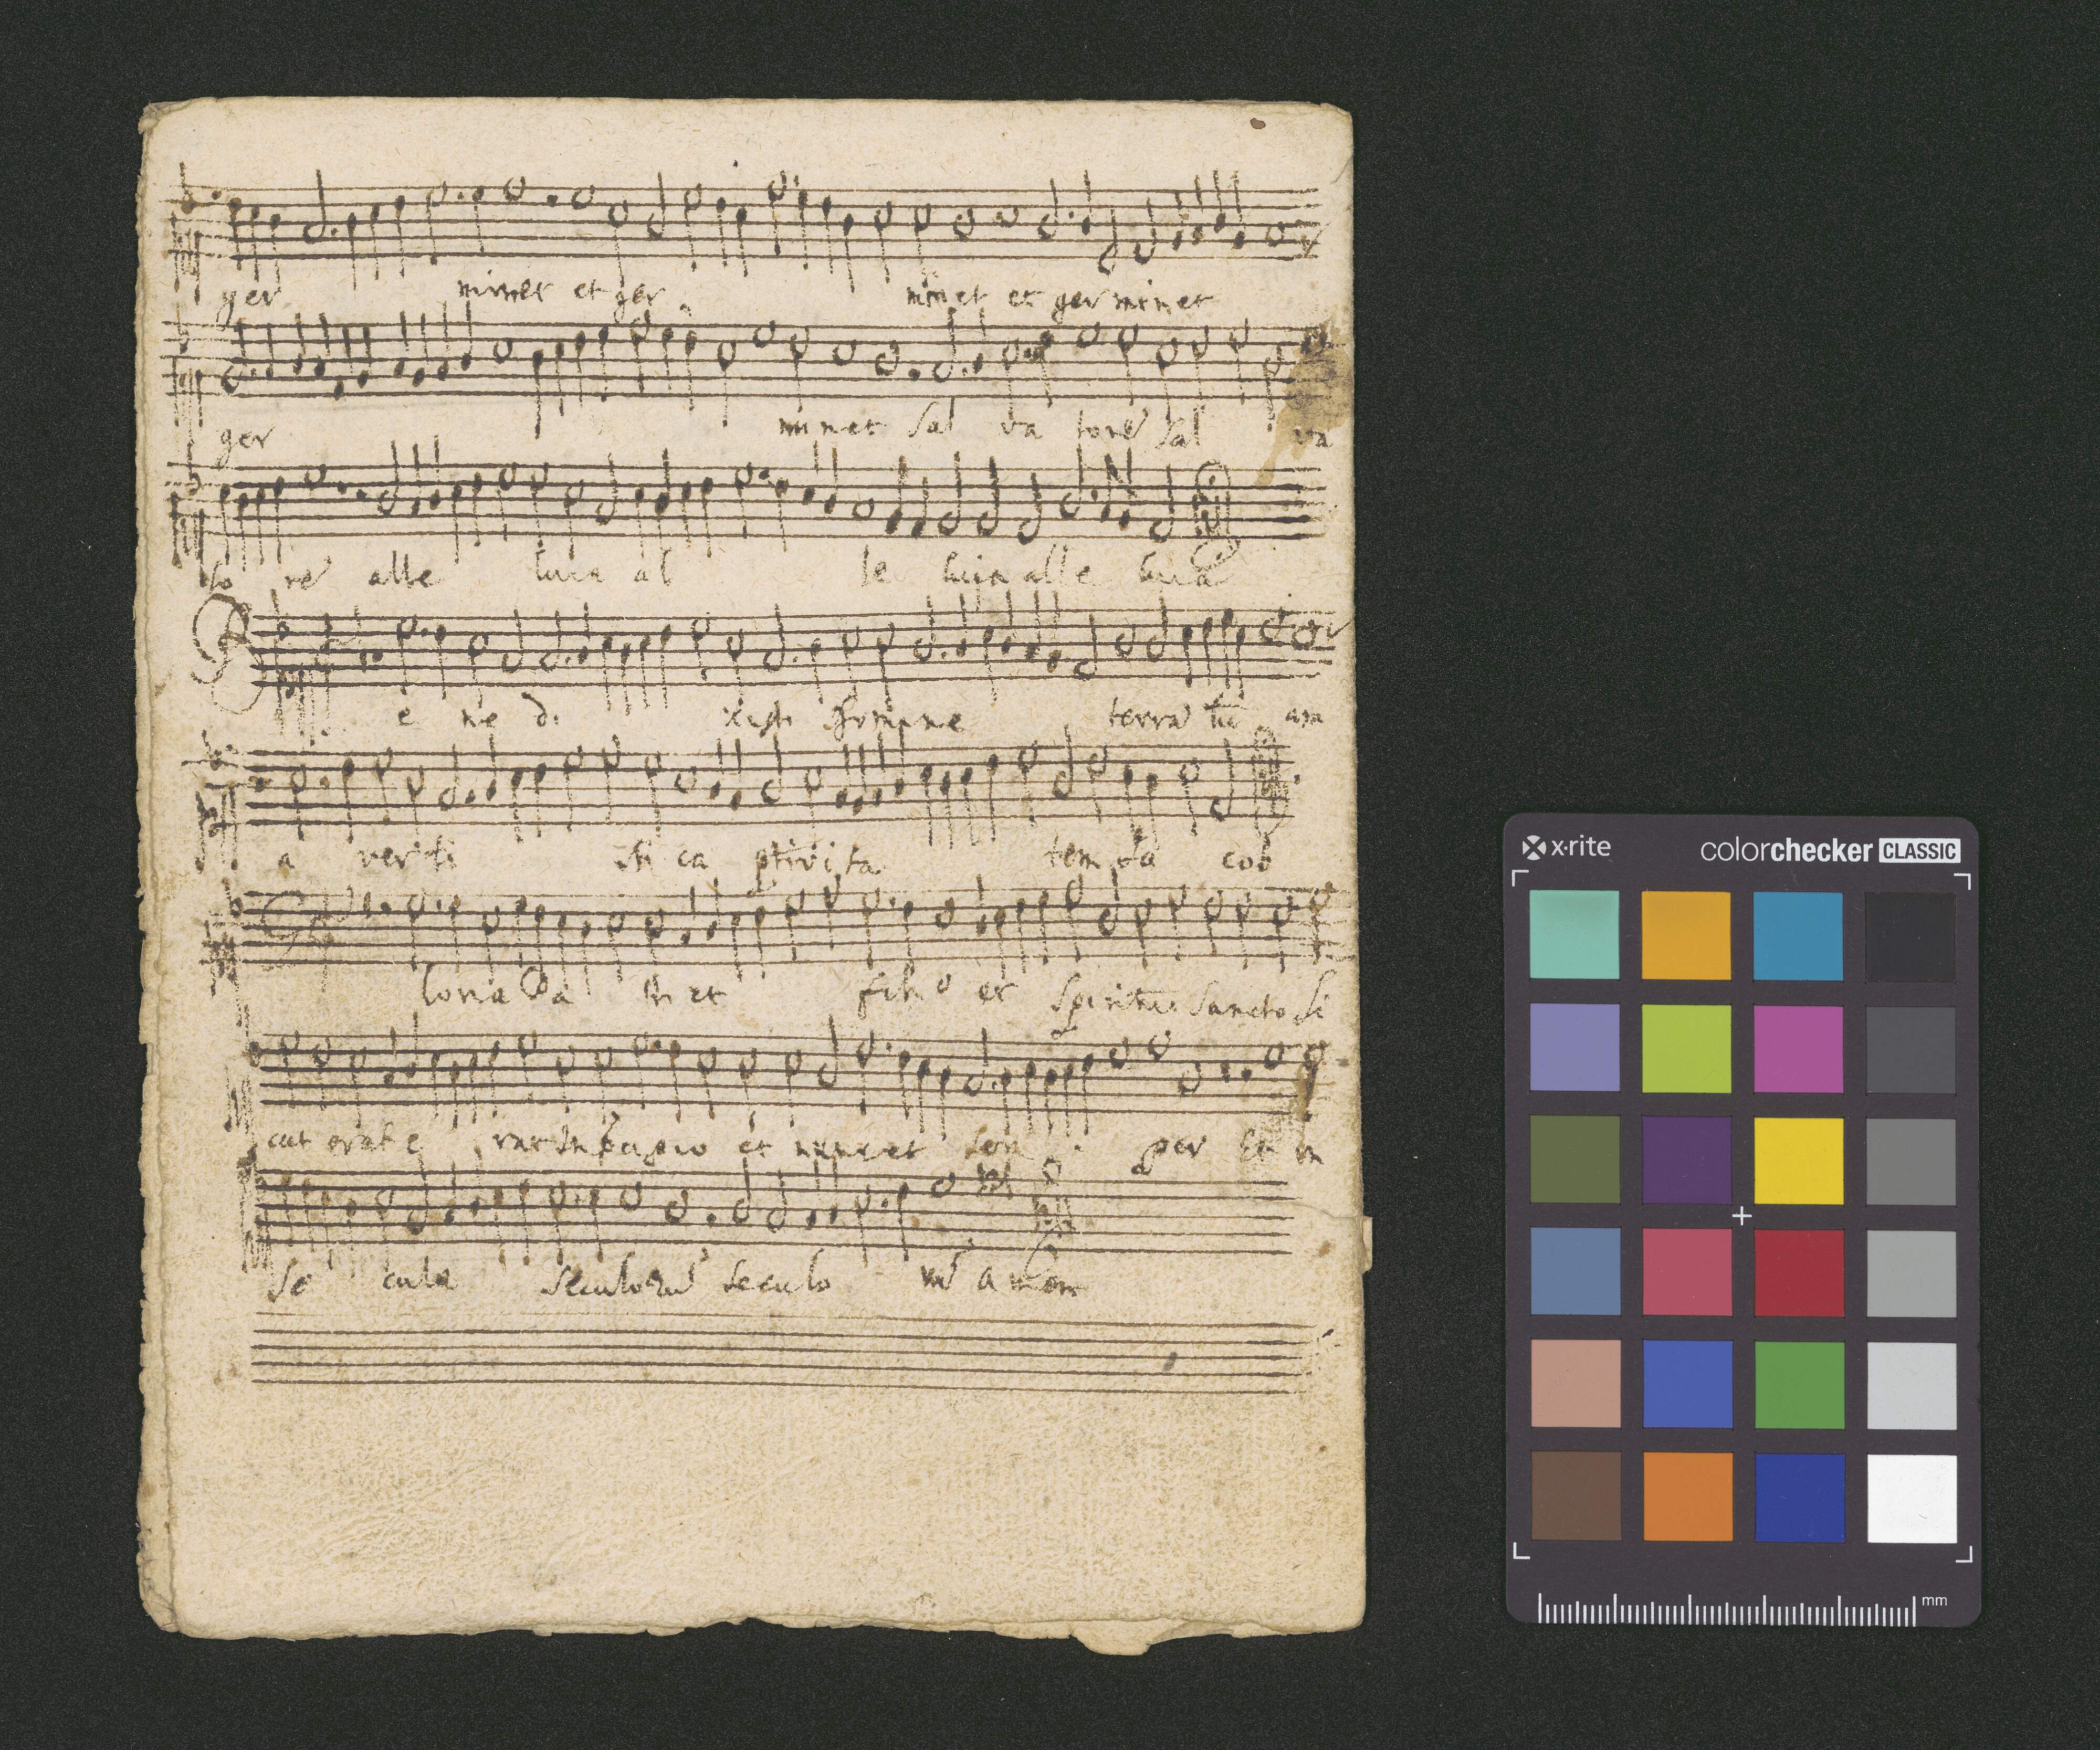 ger minet et ger minet et germinet
ger minet Sal va tore Sal va
to re alle luia al le luia alle luia
B e ne di xisti Domine terrā tuā am
a verti sti ca ptivita tem Ja cob
loria Pa tri et filio et Spiritui Sancto Si
cut erat e rat In principio et nunc et Sem per Et in
Se cula Seculorum Seculo rum amen
x·rite colorchecker CLASSIC
mm